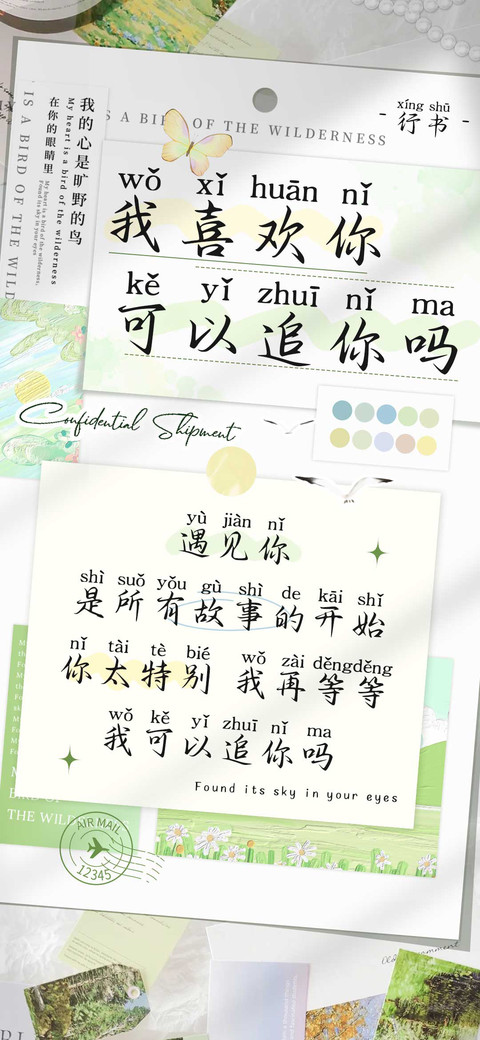 xíng shū
- 行书 -
IS A BIRD OF THE WILDERNESS
IS A BIRD OF THE WILD
我的心是旷野的鸟
My heart is a bird of the wilderness
在你的眼睛里
My heart is a bird of the wilderness,
Found its sky in your eyes
wǒ xǐ huān nǐ
我喜欢你
kě yǐ zhuī nǐ ma
可以追你吗
Confidential Shipment
yù jiàn nǐ
遇见你
shì suǒ yǒu gù shì de kāi shǐ
是所有故事的开始
nǐ tài tè bié wǒ zài děngděng
你太特别 我再等等
wǒ kě yǐ zhuī nǐ ma
我可以追你吗
Found its sky in your eyes
BIRD OF
THE WILD
AIR MAIL
12345